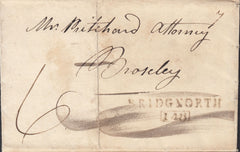 Mr Pritchard Attorney
Broseley
6
BRIDGNORTH
148